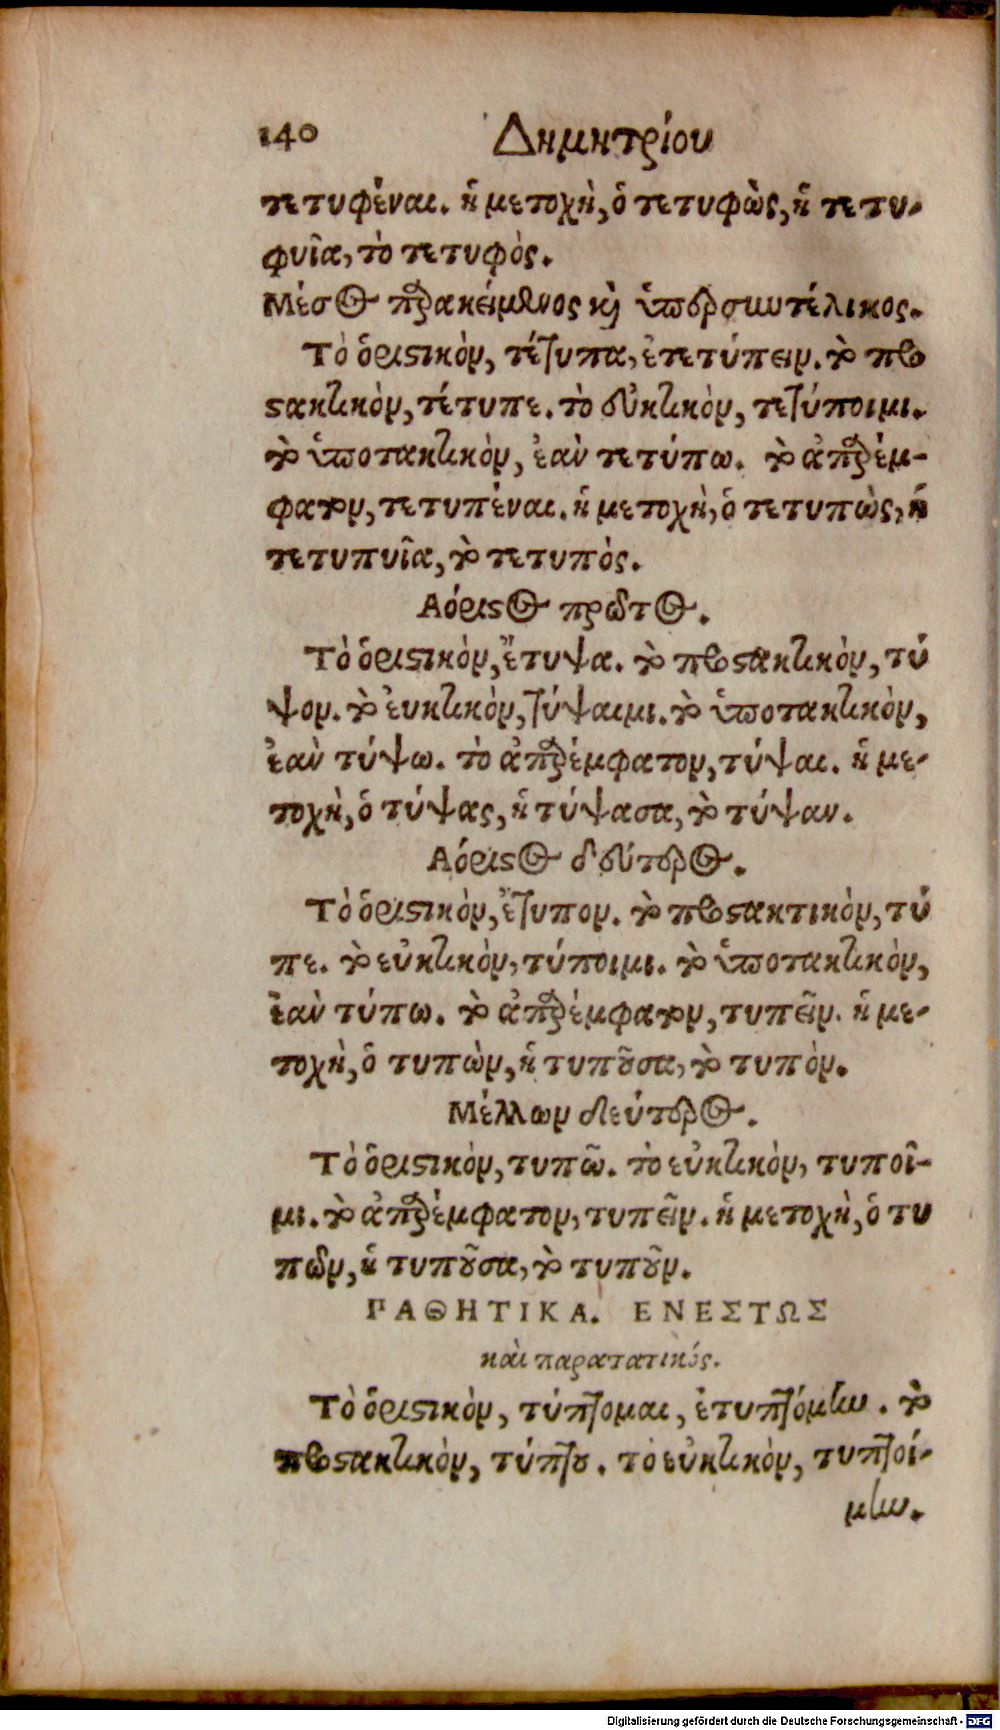 140 Δημητρίου
τετυφέναι. ἡ μετοχὴ, ὁ τετυφὼς, ἡ τετυ-
φυῖα, τὸ τετυφὸς.
Μέσος παρακείμενος καὶ ὑπερσυντέλικος.
Τὸ ὁριστικὸν, τέτυπα, ἐτετύπειν. τὸ προ
στακτικὸν, τέτυπε. τὸ εὐκτικὸν, τετύποιμι.
τὸ ὑποτακτικὸν, ἐὰν τετύπω. τὸ ἀπαρέμ-
φατον, τετυπέναι. ἡ μετοχὴ, ὁ τετυπὼς, ἡ
τετυπυῖα, τὸ τετυπὸς.
Αόριστος πρῶτος.
Τὸ ὁριστικὸν, ἔτυψα. τὸ προστακτικὸν, τύ
ψον. τὸ εὐκτικὸν, τύψαιμι. τὸ ὑποτακτικὸν,
ἐὰν τύψω. τὸ ἀπαρέμφατον, τύψαι. ἡ με-
τοχὴ, ὁ τύψας, ἡ τύψασα, τὸ τύψαν.
Αόριστος δεύτερος.
Τὸ ὁριστικὸν, ἔτυπον. τὸ προστακτικὸν, τύ
πε. τὸ εὐκτικὸν, τύποιμι. τὸ ὑποτακτικὸν,
ἐὰν τύπω. τὸ ἀπαρέμφατον, τυπεῖν. ἡ με-
τοχὴ, ὁ τυπὼν, ἡ τυποῦσα, τὸ τυπὸν.
Μέλλων δεύτερος.
Τὸ ὁριστικὸν, τυπῶ. τὸ εὐκτικὸν, τυποῖ-
μι. τὸ ἀπαρέμφατον, τυπεῖν. ἡ μετοχὴ, ὁ τυ
πῶν, ἡ τυποῦσα, τὸ τυποῦν.
ΠΑΘΗΤΙΚΑ. ΕΝΕΣΤΩΣ
καὶ παρατατικός.
Τὸ ὁριστικὸν, τύπτομαι, ἐτυπτόμην. τὸ
προστακτικὸν, τύπτου. τὸ εὐκτικὸν, τυπτοί-
μην.
Digitalisierung gefördert durch die Deutsche Forschungsgemeinschaft - DFG